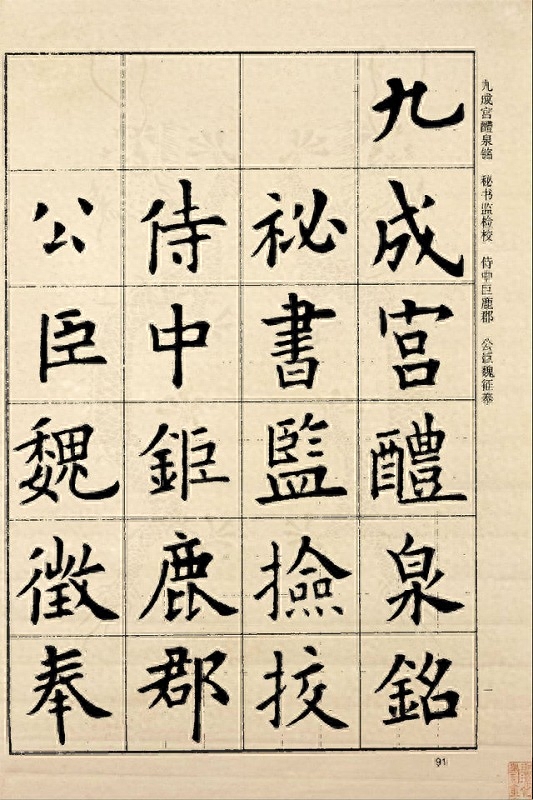 九成宮醴泉銘
祕書監撿挍
侍中鉅鹿郡
公臣魏徵奉
九成宫醴泉铭 秘书监检校 侍中巨鹿郡 公臣魏征奉
91